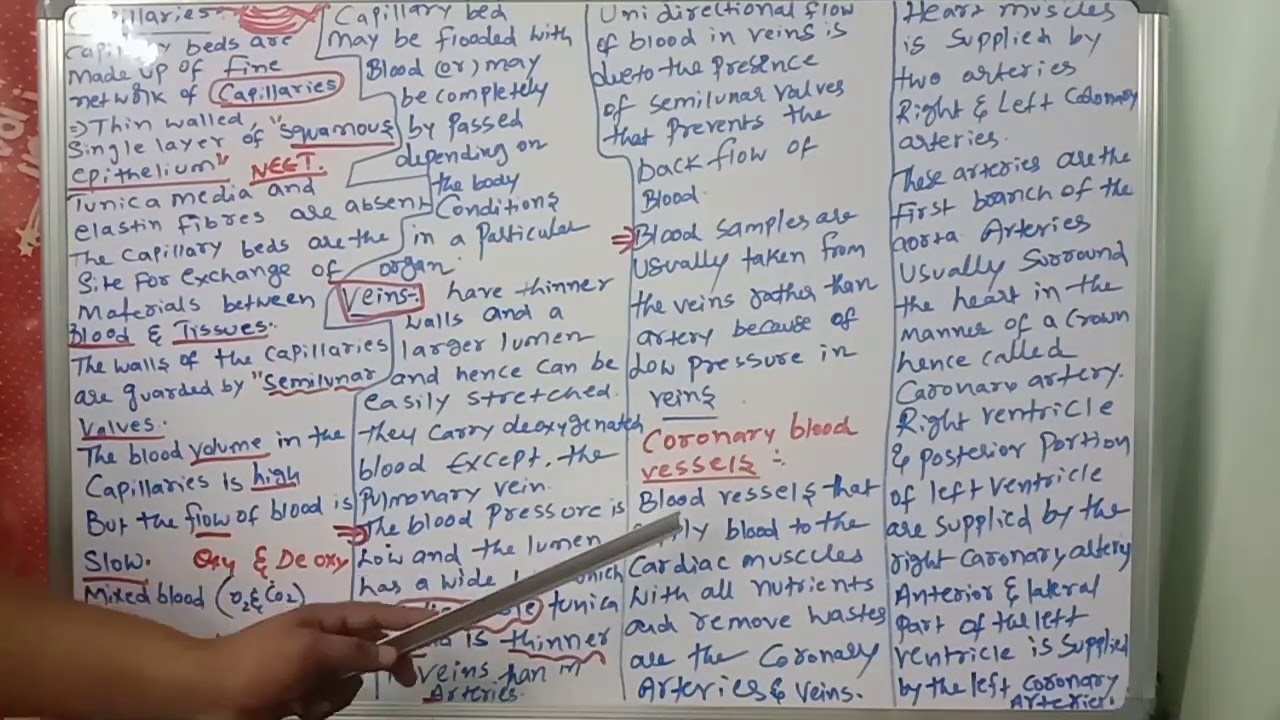 Capillaries
Capillary beds are
made up of fine
network of Capillaries
⇒ Thin walled,
Single layer of "Squamous
epithelium" NEET.
Tunica media and
elastin fibres are absent
The Capillary beds are the
Site for exchange of
Materials between
Blood & Tissues.
The walls of the Capillaries
are guarded by "Semilunar
Valves.
The blood volume in the
Capillaries is high
But the flow of blood is
Slow. Oxy & De oxy
Mixed blood (O2 & CO2)
Capillary bed
may be flooded with
Blood (or) may
be completely
by passed
depending on
the body
Conditions
in a Particular
organ.
Veins:- have thinner
walls and a
larger lumen
and hence can be
easily stretched.
They carry deoxygenated
blood except, the
Pulmonary vein.
⇒ The blood Pressure is
Low and the lumen
has a wide which
tunica
is thinner
veins than in
Arteries.
Uni directional flow
of blood in veins is
due to the Presence
of semilunar valves
that Prevents the
back flow of
Blood.
⇒ Blood samples are
Usually taken from
the veins rather than
artery because of
Low pressure in
veins
Coronary blood
vessels :-
Blood vessels that
blood to the
Cardiac muscles
with all nutrients
and remove wastes
are the Coronary
Arteries & veins.
Heart muscles
is Supplied by
two arteries
Right & Left Coronary
arteries.
These arteries are the
first branch of the
aorta Arteries
Usually Surround
the heart in the
manner of a Crown
hence called
Caronary artery.
Right ventricle
& posterior Portion
of left ventricle
are supplied by the
right Caronary artery
Anterior & lateral
Part of the left
ventricle is Supplied
by the left coronary
Arteries.